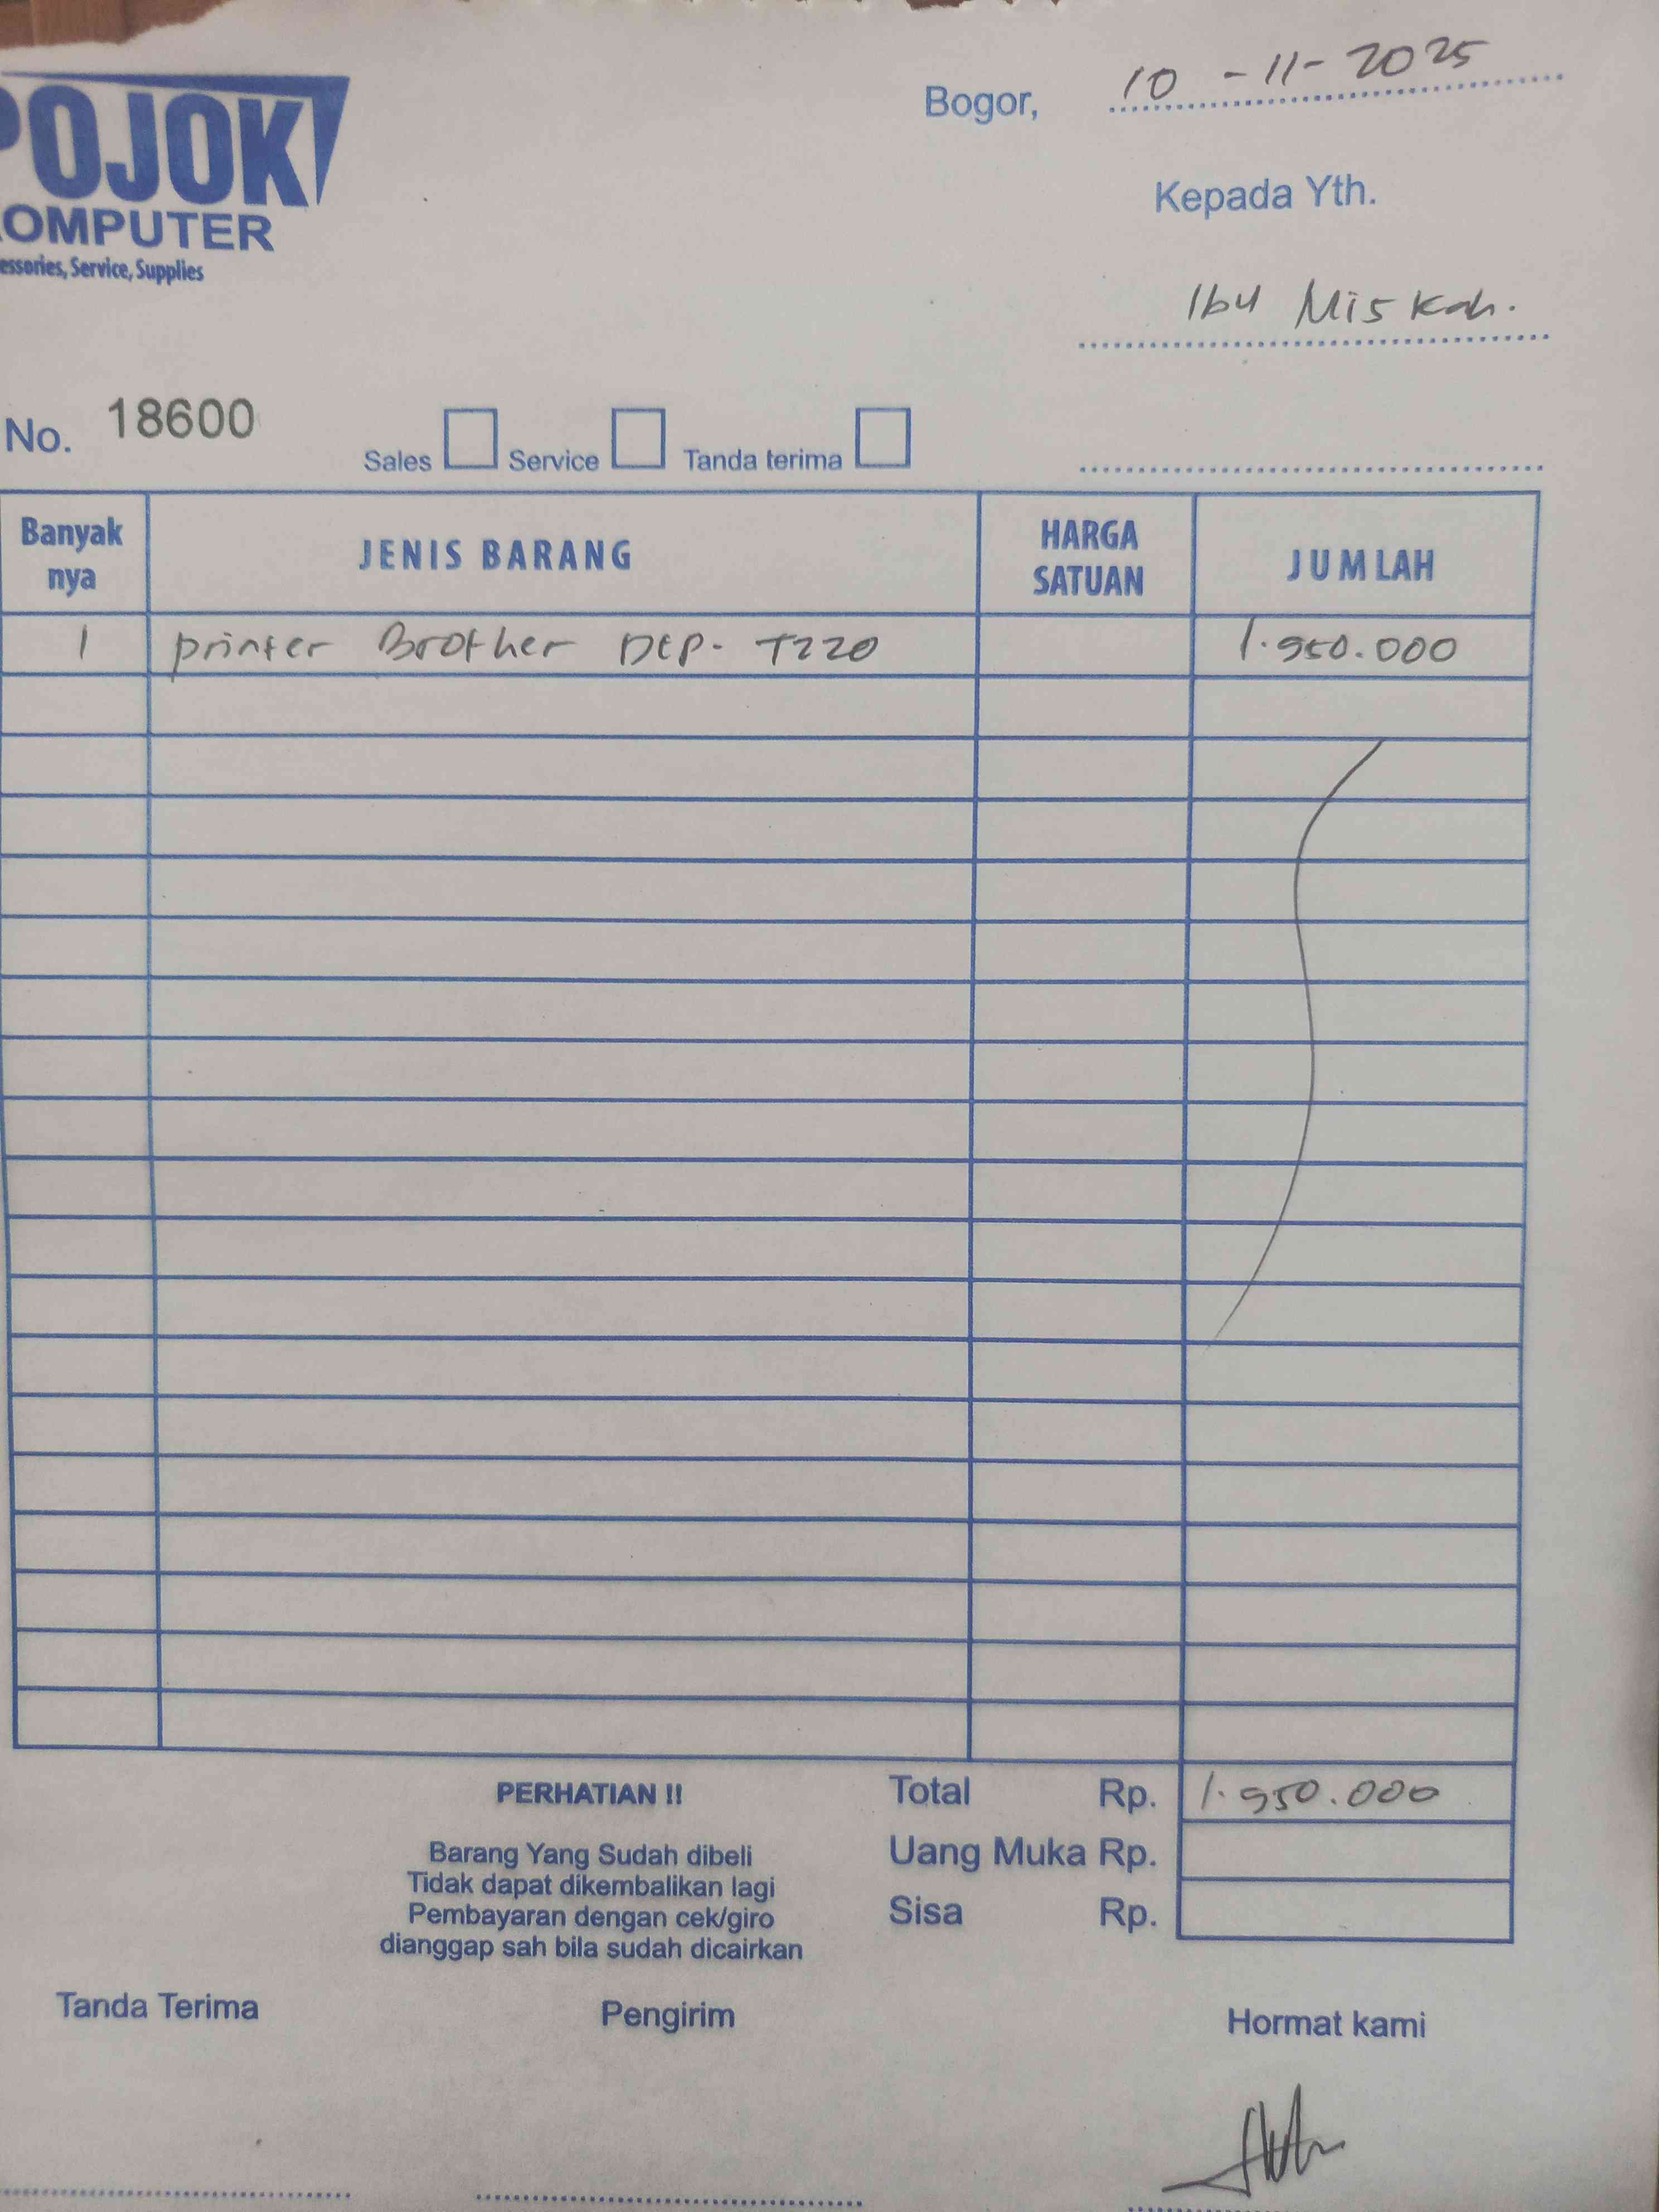 POJOK
OMPUTER
essories, Service, Supplies
Bogor, 10 - 11 - 2025
Kepada Yth.
Ibu Miskah.
No. 18600
Sales Service Tanda terima
Banyak nya JENIS BARANG HARGA SATUAN JUMLAH
1 printer Brother DCP- T220 1.950.000
PERHATIAN !!
Barang Yang Sudah dibeli
Tidak dapat dikembalikan lagi
Pembayaran dengan cek/giro
dianggap sah bila sudah dicairkan
Total Rp. 1.950.000
Uang Muka Rp.
Sisa Rp.
Tanda Terima Pengirim Hormat kami